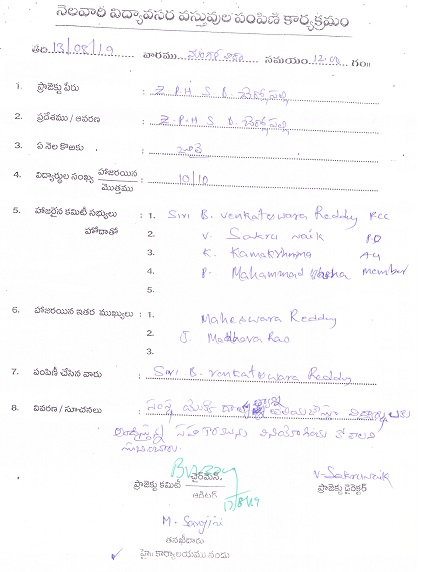 నెలవారి విద్యావసర వస్తువుల పంపిణీ కార్యక్రమం
తేది 13/08/19 వారము మంగళవారం సమయం 12.00 గం॥
1. ప్రాజెక్టు పేరు : Z.P.H.S B.
2. ప్రదేశము / ఆవరణ : Z.P.H.S B.
3. ఏ నెల కొఱకు : జూలై
4. విద్యార్థుల సంఖ్య హాజరయిన / మొత్తము : 10/10
5. హాజరైన కమిటీ సభ్యులు హోదాతో : 1. Siri B. Venkateswara Reddy PCC
2. V. Sakru naik P.D
3. K. Ramakrishna
4. P. Mahammad Member
5.
6. హాజరయిన ఇతర ముఖ్యులు : 1. Maheswara Reddy
2. J. Madhava Rao
3.
7. పంపిణీ చేసిన వారు : Siri B. Venkateswara Reddy
8. వివరణ / సూచనలు : సంస్థ యొక్క
సూచించారు.
ప్రాజెక్టు కమిటీ చైర్‌మెన్. / ఆడిటర్
13/8/19
V. Sakrunaik
ప్రాజెక్టు డైరెక్టర్
M. Sangini
తనఖీదారు
✓ హై॥ కార్యాలయము నందు